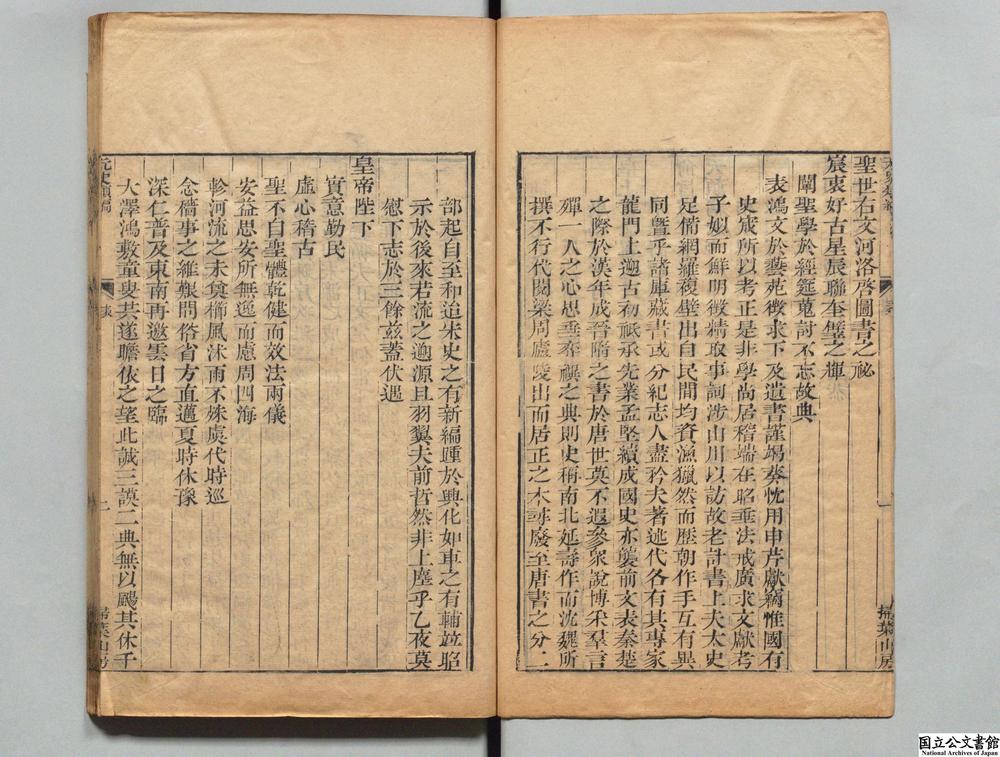 聖世右文河洛啓圖書之祕
宸衷好古星辰聯奎璧之輝
闡聖學於經筵蒐討不忘故典
表鴻文於藝苑徵求下及遺書謹竭葵忱用申芹獻竊惟國有
史宬所以考正是非學尚居稽端在昭垂法戒廣求文獻考
子姒而鮮明徵精取事詞涉山川以訪故老計書上夫太史
足備網羅複壁出自民間均資漁獵然而歷朝作手互有異
同曁乎諸庫藏書或分紀志人盡矜夫著述代各有其專家
龍門上遡古初祇承先業孟堅續成國史亦襲前文表秦楚
之際於漢年成晉隋之書於唐世莫不遐參衆說博采羣言
殫一人之心思垂奕禩之典則史稱南北延壽作而沈魏所
撰不行代閱梁周廬陵出而居正之本遂廢至唐書之分二
掃葉山房
部起自至和迨宋史之有新編踵於興化如車之有輔並昭
示於後來若流之遡源且羽翼夫前哲然非上塵乎乙夜莫
慰下志於三餘茲蓋伏遇
皇帝陛下
實意勤民
虛心稽古
聖不自聖體乾健而效法兩儀
安益思安所無逸而慮周四海
軫河流之未奠櫛風沐雨不殊虞代時巡
念穡事之維艱問俗省方直邁夏時休豫
深仁普及東南再邀雲日之臨
大澤鴻敷童叟共遂瞻依之望此誠三謨二典無以颺其休千
元史類編
表
二
掃葉山房
国立公文書館
National Archives of Japan